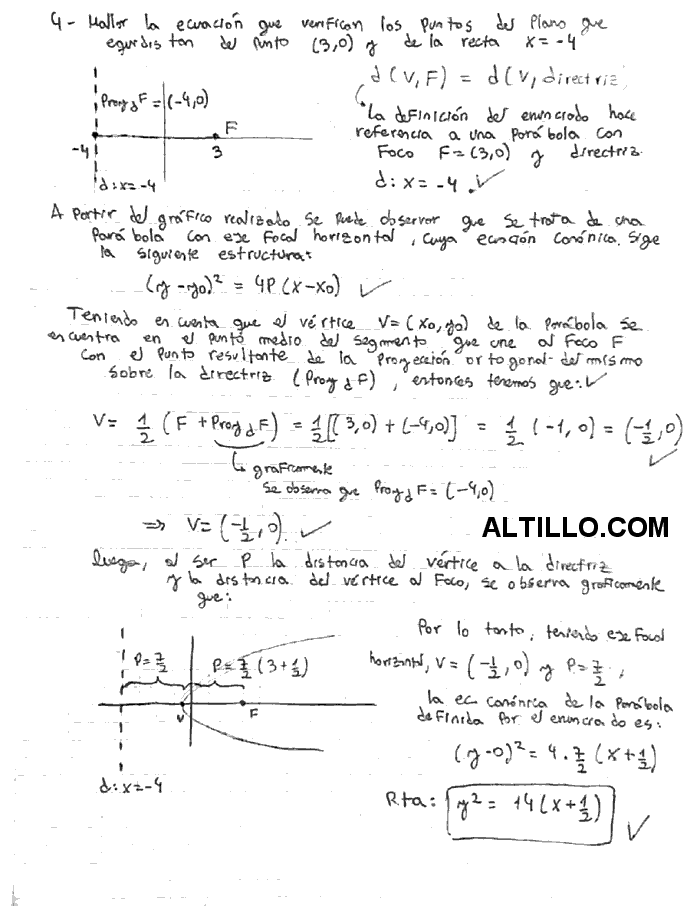 4- Hallar la ecuación que verifican los puntos del plano que
equidistan del punto (3,0) y de la recta x=-4
Proy d F = (-4,0)
F
-4
3
d: x=-4
d(V,F) = d(V, directriz)
La definición del enunciado hace
referencia a una parábola con
Foco F=(3,0) y directriz
d: x=-4 ✓
A partir del gráfico realizado se puede observar que se trata de una
parábola con eje focal horizontal, cuya ecuación canónica sige
la siguiente estructura:
(y-y0)² = 4P(x-x0) ✓
Teniendo en cuenta que el vértice V=(x0,y0) de la parábola se
encuentra en el punto medio del segmento que une al Foco F
con el punto resultante de la proyección ortogonal del mismo
sobre la directriz (Proy d F), entonces tenemos que: ✓
V= 1/2 (F + Proy d F) = 1/2[(3,0) + (-4,0)] = 1/2 (-1,0) = (-1/2,0) ✓
↳ graficamente
se observa que Proy d F = (-4,0)
⇒ V=(-1/2,0). ✓
ALTILLO.COM
luego, al ser P la distancia del vértice a la directriz
y la distancia del vértice al Foco, se observa graficamente
que:
P=7/2
P=7/2 (3+1/2)
V
F
d: x=-4
Por lo tanto, teniendo eje focal
horizontal, V=(-1/2,0) y P=7/2,
la ec canónica de la parábola
definida por el enunciado es:
(y-0)² = 4.7/2 (x+1/2)
Rta: y² = 14(x+1/2) ✓